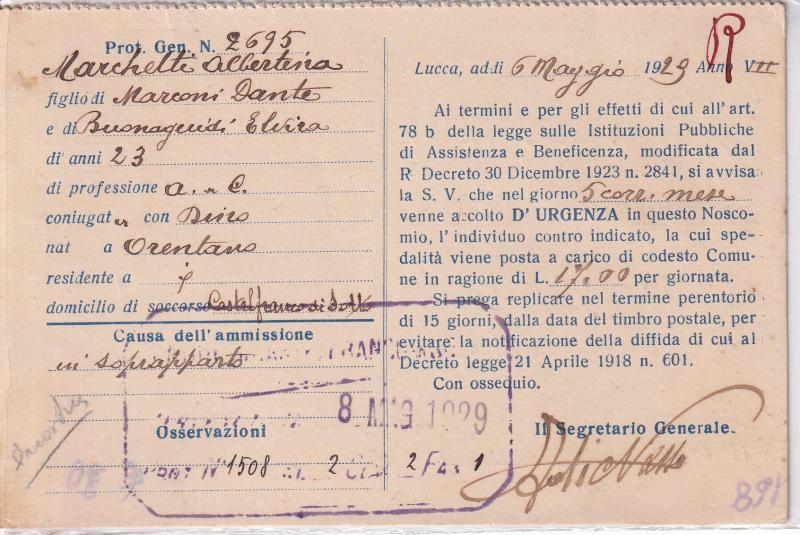 Prot. Gen. N. 2695
Marchetti Albertina
figlio di Marconi Dante
e di Buonaguidi Elvira
di anni 23
di professione a. a C.
coniugata con Dino
nat a Orentano
residente a
domicilio di soccorso Castelfranco di Sotto
Causa dell'ammissione
in soprapparto
Osservazioni
8 MAG 1929
1508 2 2 1
R
Lucca, addì 6 Maggio 1929 Anno VII
Ai termini e per gli effetti di cui all'art.
78 b della legge sulle Istituzioni Pubbliche
di Assistenza e Beneficenza, modificata dal
R Decreto 30 Dicembre 1923 n. 2841, si avvisa
la S. V. che nel giorno 5 corr. mese
venne accolto D' URGENZA in questo Nosco-
mio, l'individuo contro indicato, la cui spe-
dalità viene posta a carico di codesto Comu-
ne in ragione di L. 17.00 per giornata.
Si prega replicare nel termine perentorio
di 15 giorni, dalla data del timbro postale, per
evitare la notificazione della diffida di cui al
Decreto legge 21 Aprile 1918 n. 601.
Con ossequio.
Il Segretario Generale.